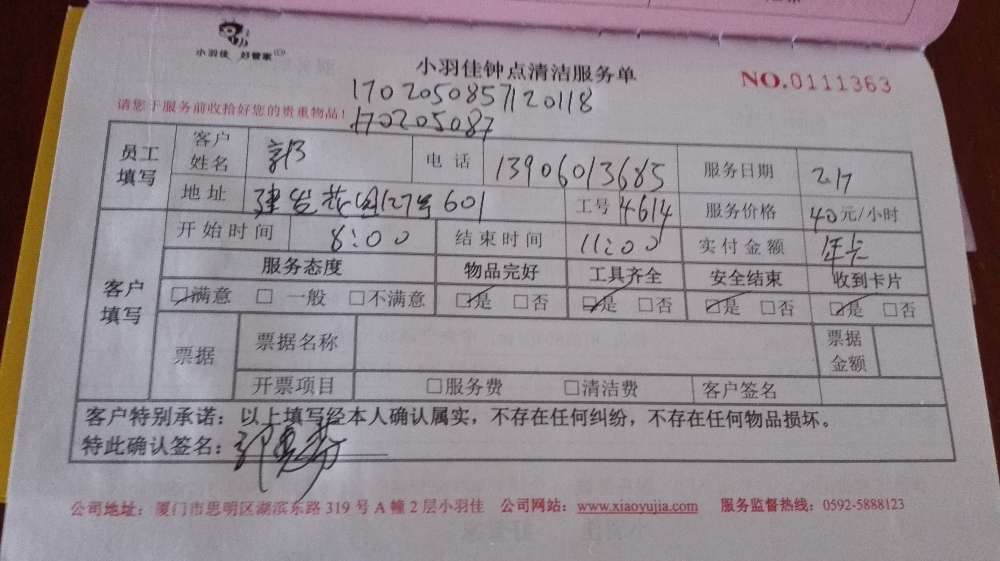 小羽佳 好管家
小羽佳钟点清洁服务单
NO.0111363
1702050857120118
请您于服务前收拾好您的贵重物品!
170205087
员工填写 客户姓名 郭 电话 13906013685 服务日期 2.17
地址 建发花园127号601 工号 4614 服务价格 40元/小时
客户填写 开始时间 8:00 结束时间 11:00 实付金额 年卡
服务态度 物品完好 工具齐全 安全结束 收到卡片
☑满意 □一般 □不满意 ☑是 □否 ☑是 □否 ☑是 □否 ☑是 □否
票据 票据名称 票据金额
开票项目 □服务费 □清洁费 客户签名
客户特别承诺：以上填写经本人确认属实，不存在任何纠纷，不存在任何物品损坏。
特此确认签名：郭
公司地址：厦门市思明区湖滨东路319号A幢2层小羽佳 公司网站：www.xiaoyujia.com 服务监督热线：0592-5888123